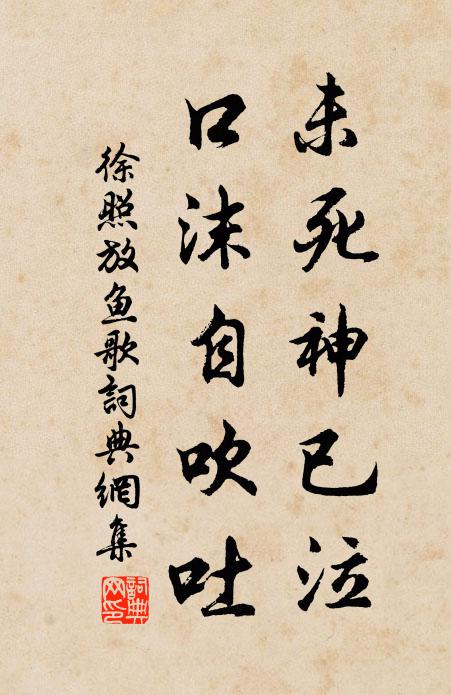 未死神已泣
口沫自吹吐
徐照放魚歌詞典網集
詞典网印